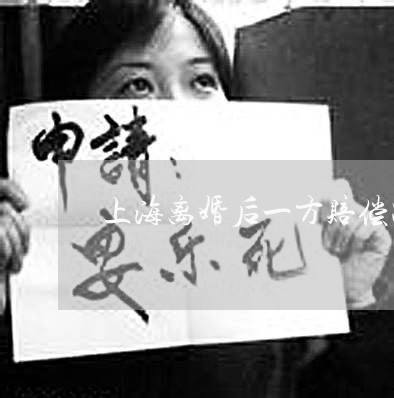 申請：
上海离婚后一方赔偿
要乐死